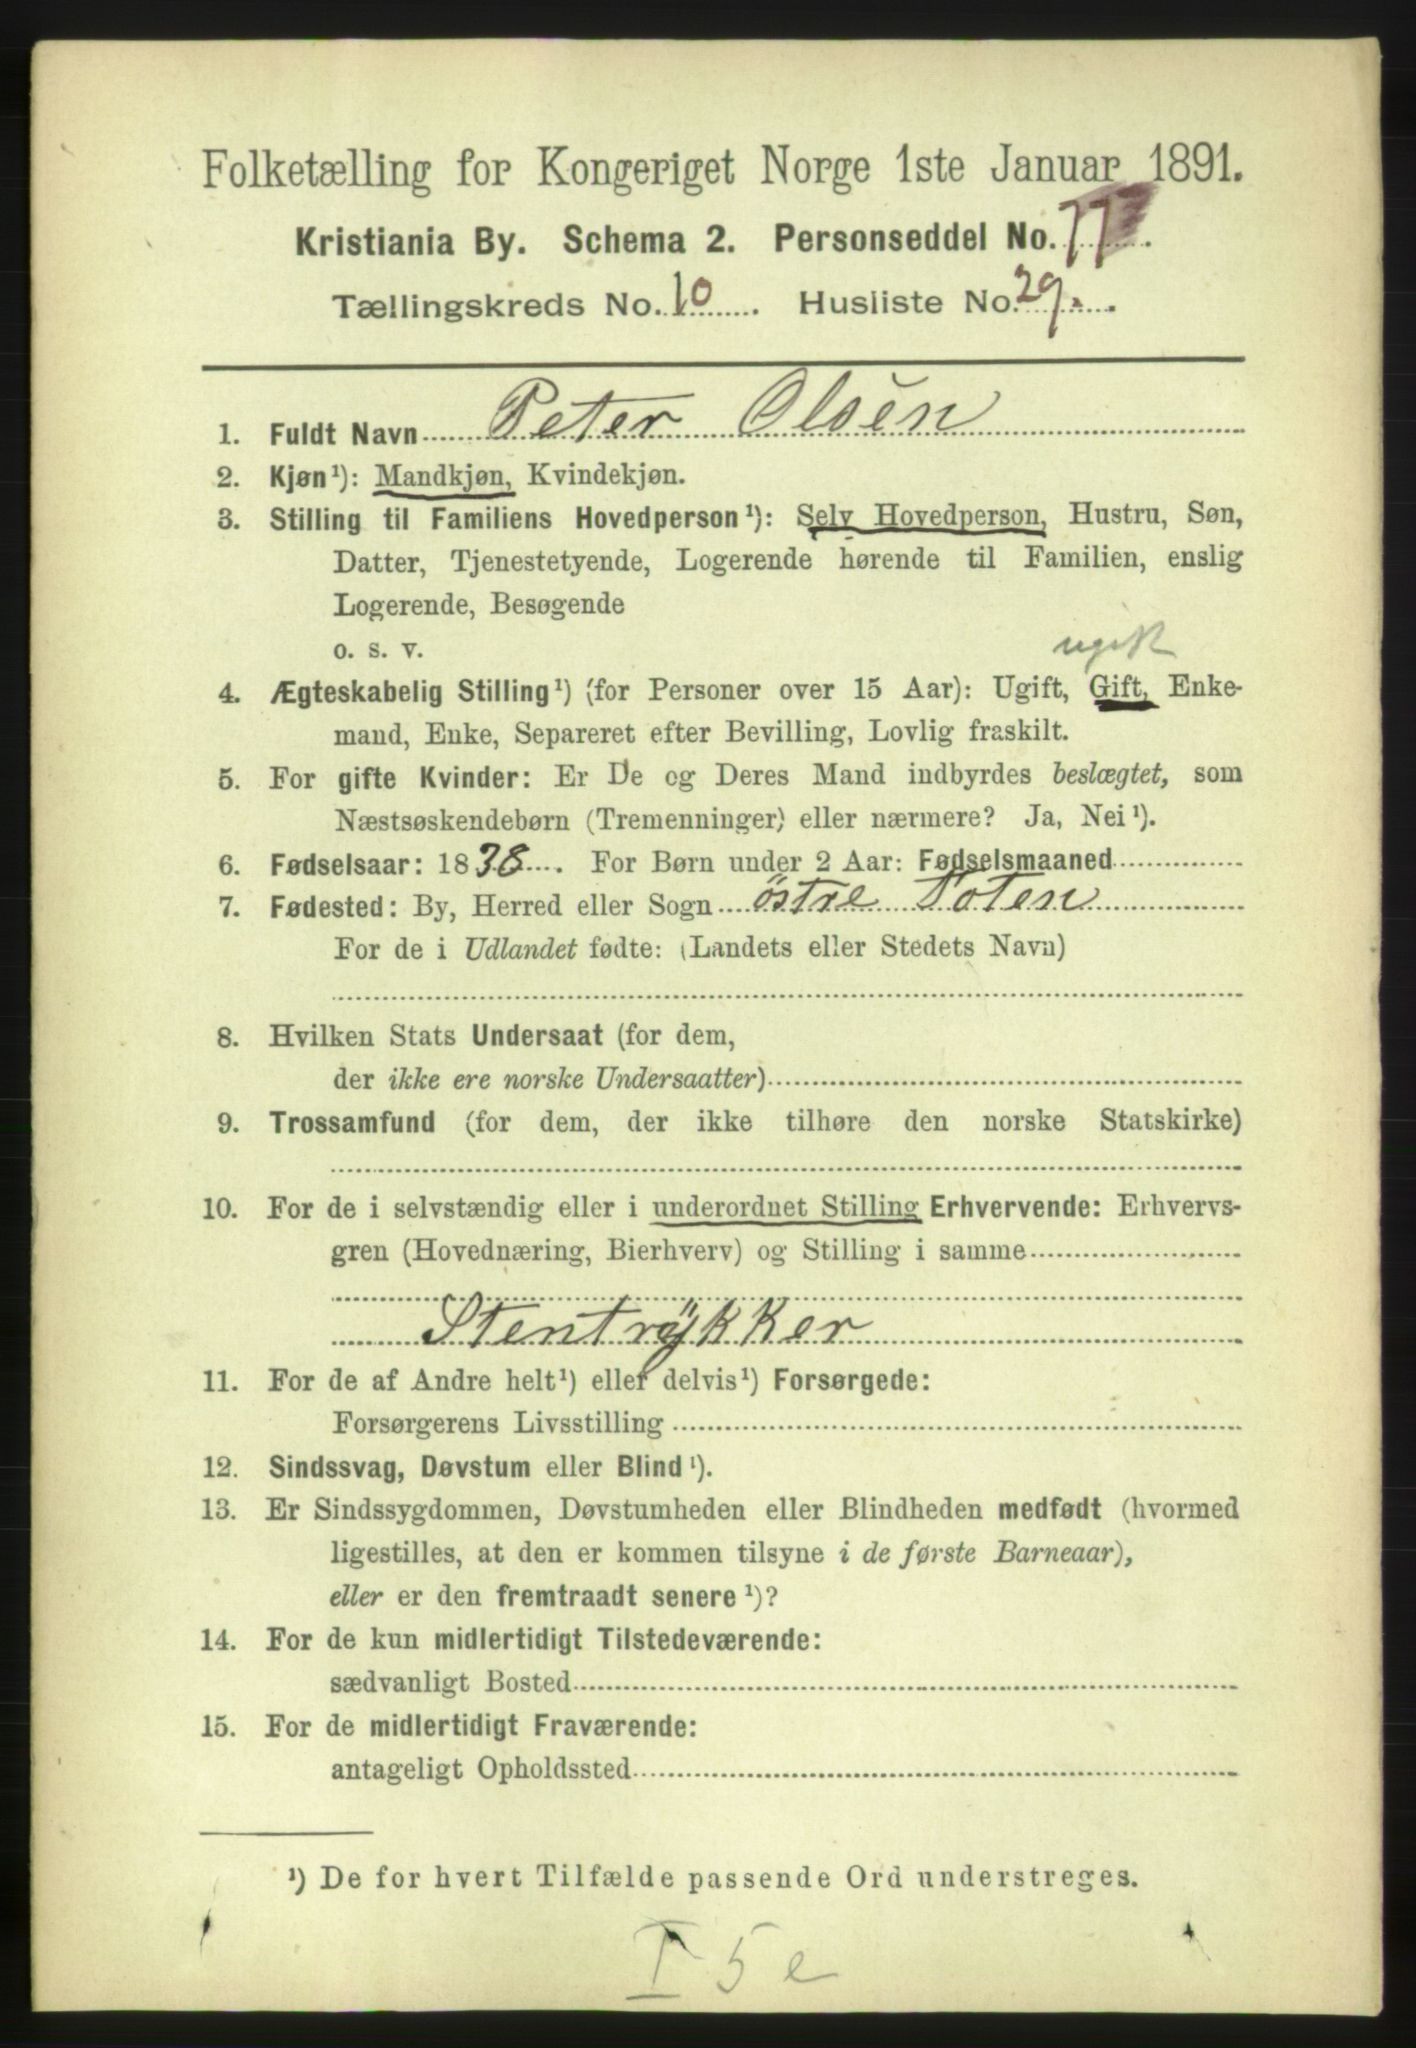 Folketælling for Kongeriget Norge 1ste Januar 1891.
Kristiania By. Schema 2. Personseddel No. 77.
Tællingskreds No. 10. Husliste No. 29.
1. Fuldt Navn Peter Olsen
2. Kjøn¹): Mandkjøn, Kvindekjøn.
3. Stilling til Familiens Hovedperson¹): Selv Hovedperson, Hustru, Søn,
Datter, Tjenestetyende, Logerende hørende til Familien, enslig
Logerende, Besøgende
o. s. v.
ugift
4. Ægteskabelig Stilling¹) (for Personer over 15 Aar): Ugift, Gift, Enke-
mand, Enke, Separeret efter Bevilling, Lovlig fraskilt.
5. For gifte Kvinder: Er De og Deres Mand indbyrdes beslægtet, som
Næstsøskendebørn (Tremenninger) eller nærmere? Ja, Nei¹).
6. Fødselsaar: 1838. For Børn under 2 Aar: Fødselsmaaned
7. Fødested: By, Herred eller Sogn östre Toten
For de i Udlandet fødte: (Landets eller Stedets Navn)
8. Hvilken Stats Undersaat (for dem,
der ikke ere norske Undersaatter)
9. Trossamfund (for dem, der ikke tilhøre den norske Statskirke)
10. For de i selvstændig eller i underordnet Stilling Erhvervende: Erhvervs-
gren (Hovednæring, Bierhverv) og Stilling i samme
Stentrÿkker
11. For de af Andre helt¹) eller delvis¹) Forsørgede:
Forsørgerens Livsstilling
12. Sindssvag, Døvstum eller Blind¹).
13. Er Sindssygdommen, Døvstumheden eller Blindheden medfødt (hvormed
ligestilles, at den er kommen tilsyne i de første Barneaar),
eller er den fremtraadt senere¹)?
14. For de kun midlertidigt Tilstedeværende:
sædvanligt Bosted
15. For de midlertidigt Fraværende:
antageligt Opholdssted
¹) De for hvert Tilfælde passende Ord understreges.
I 5 e